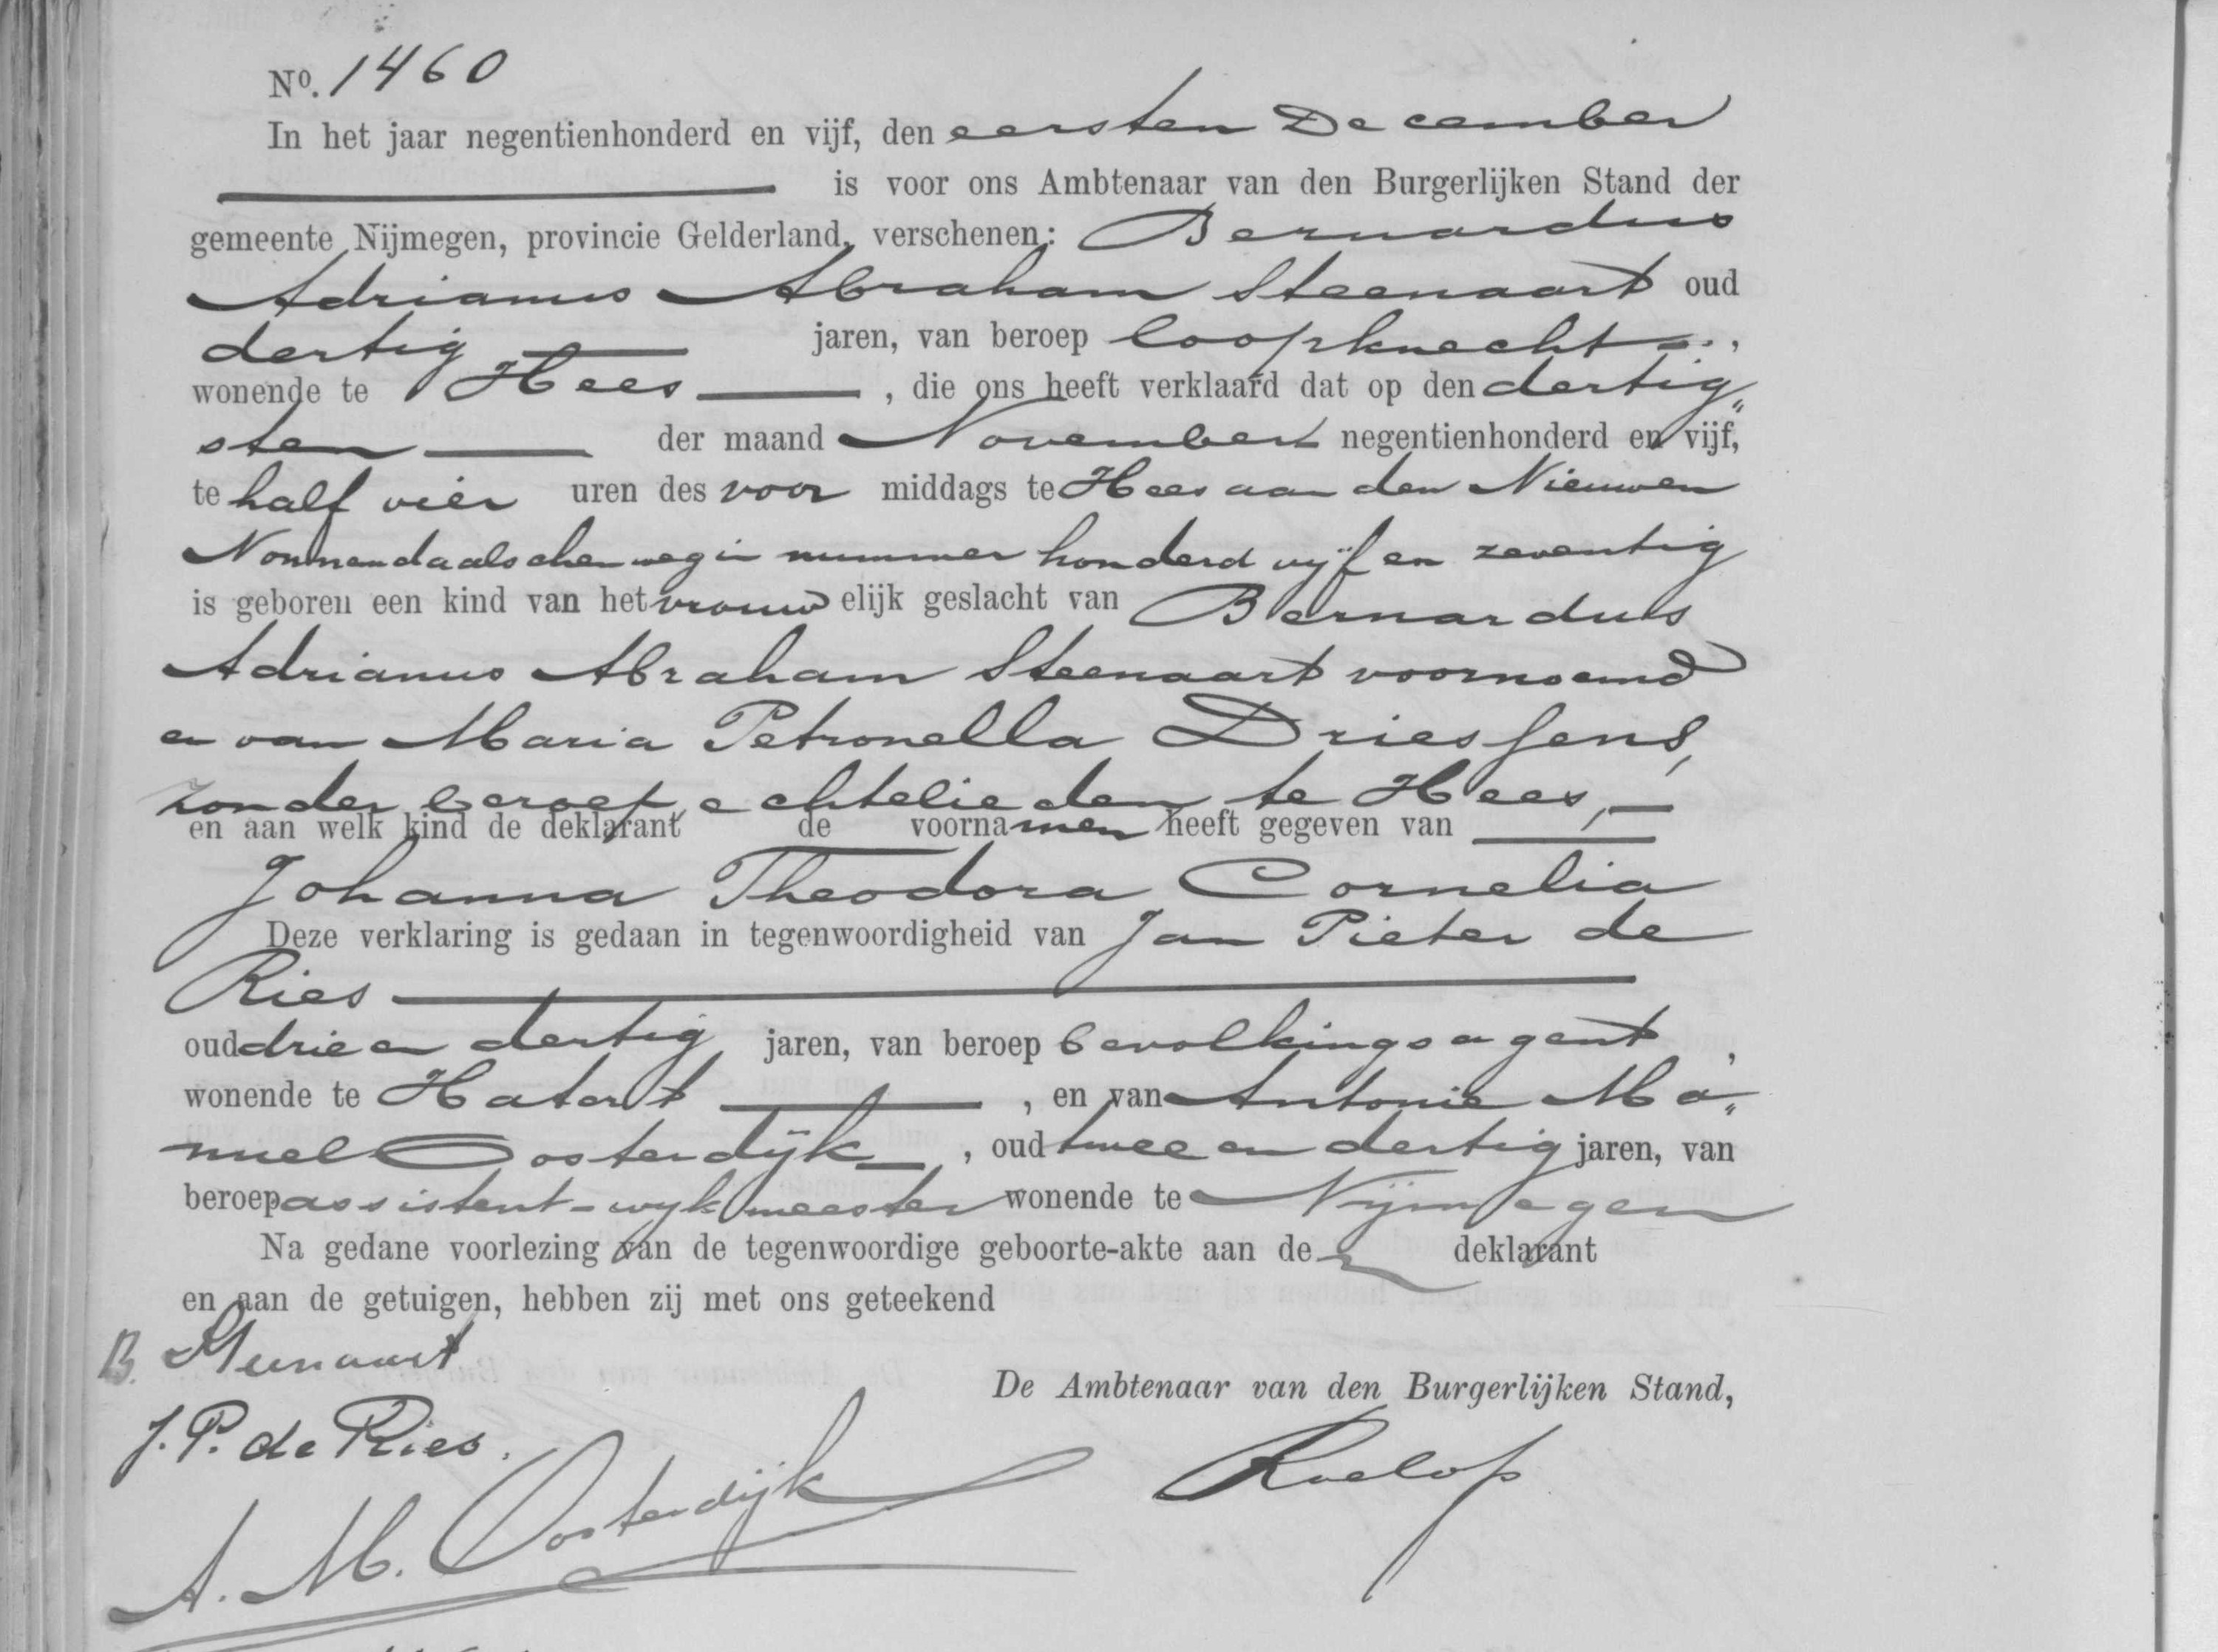 No. 1460
In het jaar negentienhonderd en vijf, den eersten December
is voor ons Ambtenaar van den Burgerlijken Stand der
gemeente Nijmegen, provincie Gelderland, verschenen: Bernardus
Adrianus Abraham Steenaart oud
dertig jaren, van beroep loopknecht,
wonende te Hees, die ons heeft verklaard dat op den dertig„
sten der maand November negentienhonderd en vijf,
te half vier uren des voor middags te Hees aan den Nieuwen
Nonnendaalschenweg in nummer honderd vijf en zeventig
is geboren een kind van het vrouwelijk geslacht van Bernardus
Adrianus Abraham Steenaart voornoemd
en van Maria Petronella Driessens,
zonder beroep, echtelieden te Hees,
en aan welk kind de deklarant de voornamen heeft gegeven van
Johanna Theodora Cornelia
Deze verklaring is gedaan in tegenwoordigheid van Jan Pieter de
Ries
oud drie en dertig jaren, van beroep bevolkingsagent,
wonende te Hatert, en van Antonie Ma„
nuel Oosterdijk, oud twee en dertig jaren, van
beroep assistent-wijkmeester wonende te Nijmegen
Na gedane voorlezing van de tegenwoordige geboorte-akte aan de deklarant
en aan de getuigen, hebben zij met ons geteekend
B. Steenaart
De Ambtenaar van den Burgerlijken Stand,
J. P. de Ries.
Roelofs
A. M. Oosterdijk